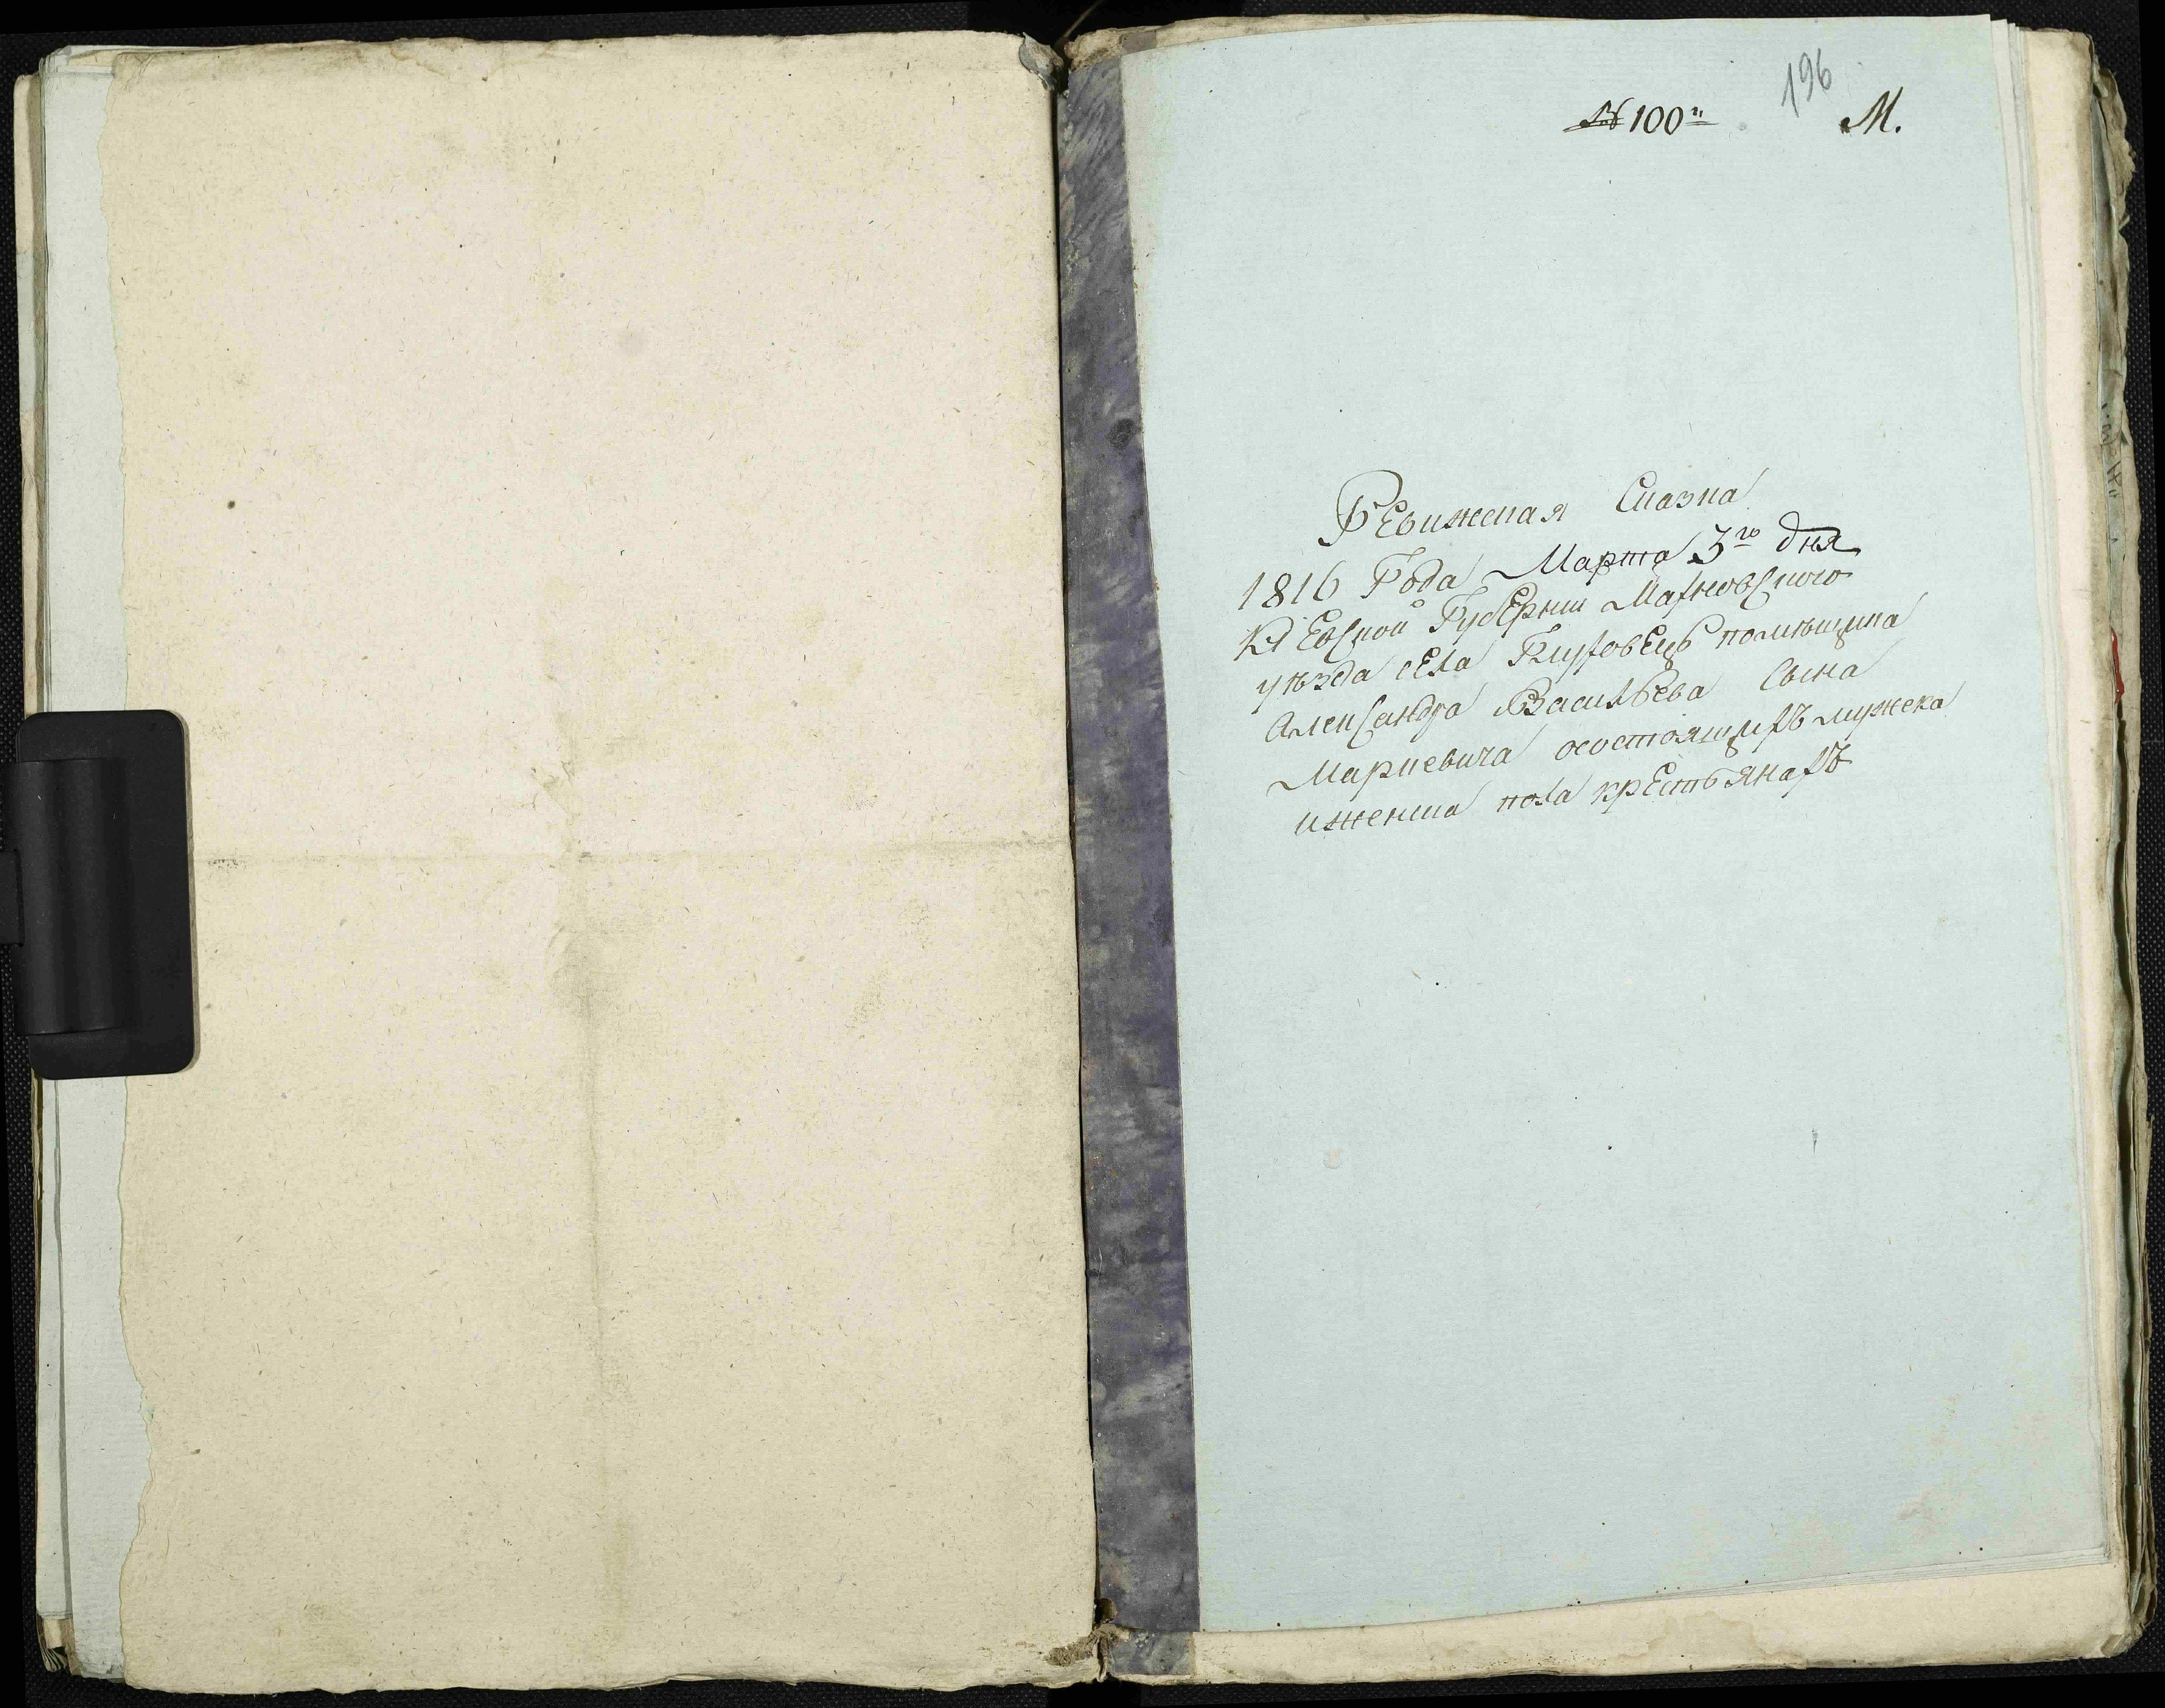 196
№ 100й М.
Ревижская Сказка
1816 Года Марта 3го дня
Киевской Губернии Махновского
уѣзда села Глуховецъ помѣщика
Александра Васильева Сына
Маркевича осостоящихъ мужека
иженска пола крестьянахъ